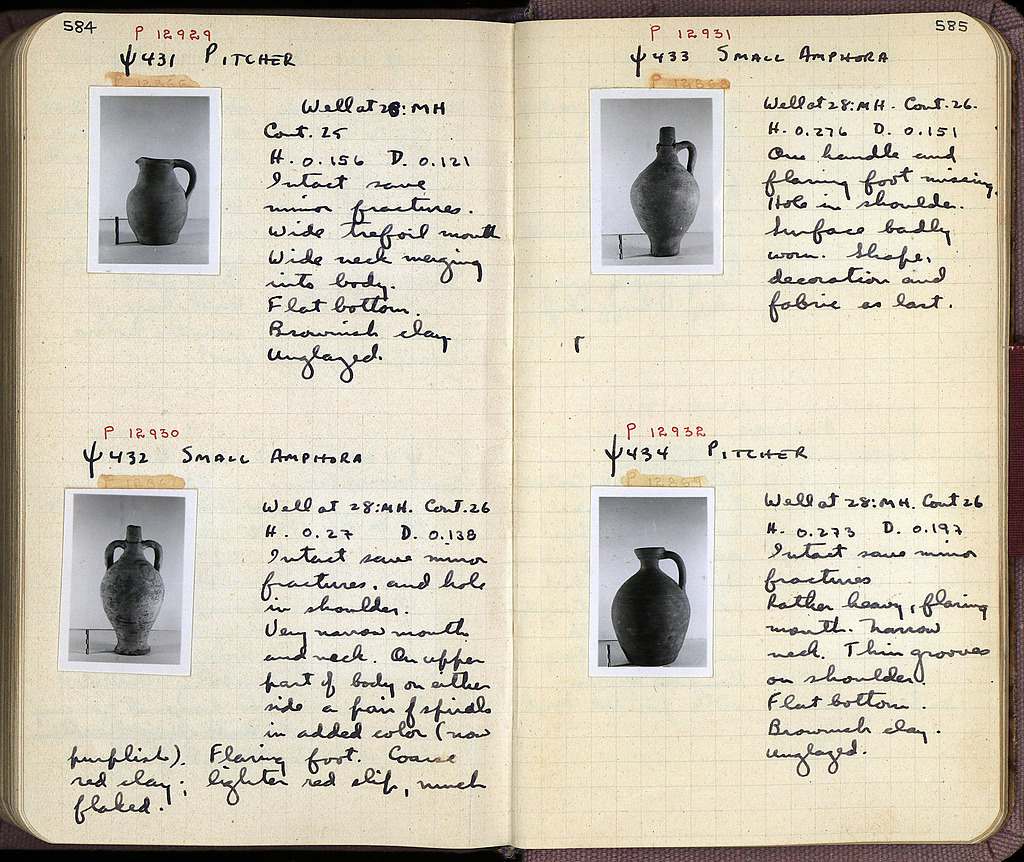 584
P 12929
ψ431 PITCHER
P 12866
Well at 28:MH
Cont. 25
H. 0.156 D. 0.121
Intact save
minor fractures.
Wide trefoil mouth
Wide neck merging
into body.
Flat bottom.
Brownish clay
Unglazed.
P 12930
ψ432 SMALL AMPHORA
Well at 28:MH. Cont. 26
H. 0.27 D. 0.138
Intact save minor
fractures, and hole
in shoulder.
Very narrow mouth
and neck. On upper
part of body on either
side a pair of spirals
in added color (now
purplish). Flaring foot. Coarse
red clay; lighter red slip, much
flaked.
585
P 12931
ψ433 SMALL AMPHORA
P 12868
Well at 28:MH. Cont. 26.
H. 0.276 D. 0.151
One handle and
flaring foot missing.
Hole in shoulder.
Surface badly
worn. Shape,
decoration and
fabric as last.
P 12932
ψ434 PITCHER
P 12869
Well at 28:MH. Cont 26
H. 0.273 D. 0.197
Intact save minor
fractures
Rather heavy, flaring
mouth. Narrow
neck. Thin grooves
on shoulder.
Flat bottom.
Brownish clay.
Unglazed.